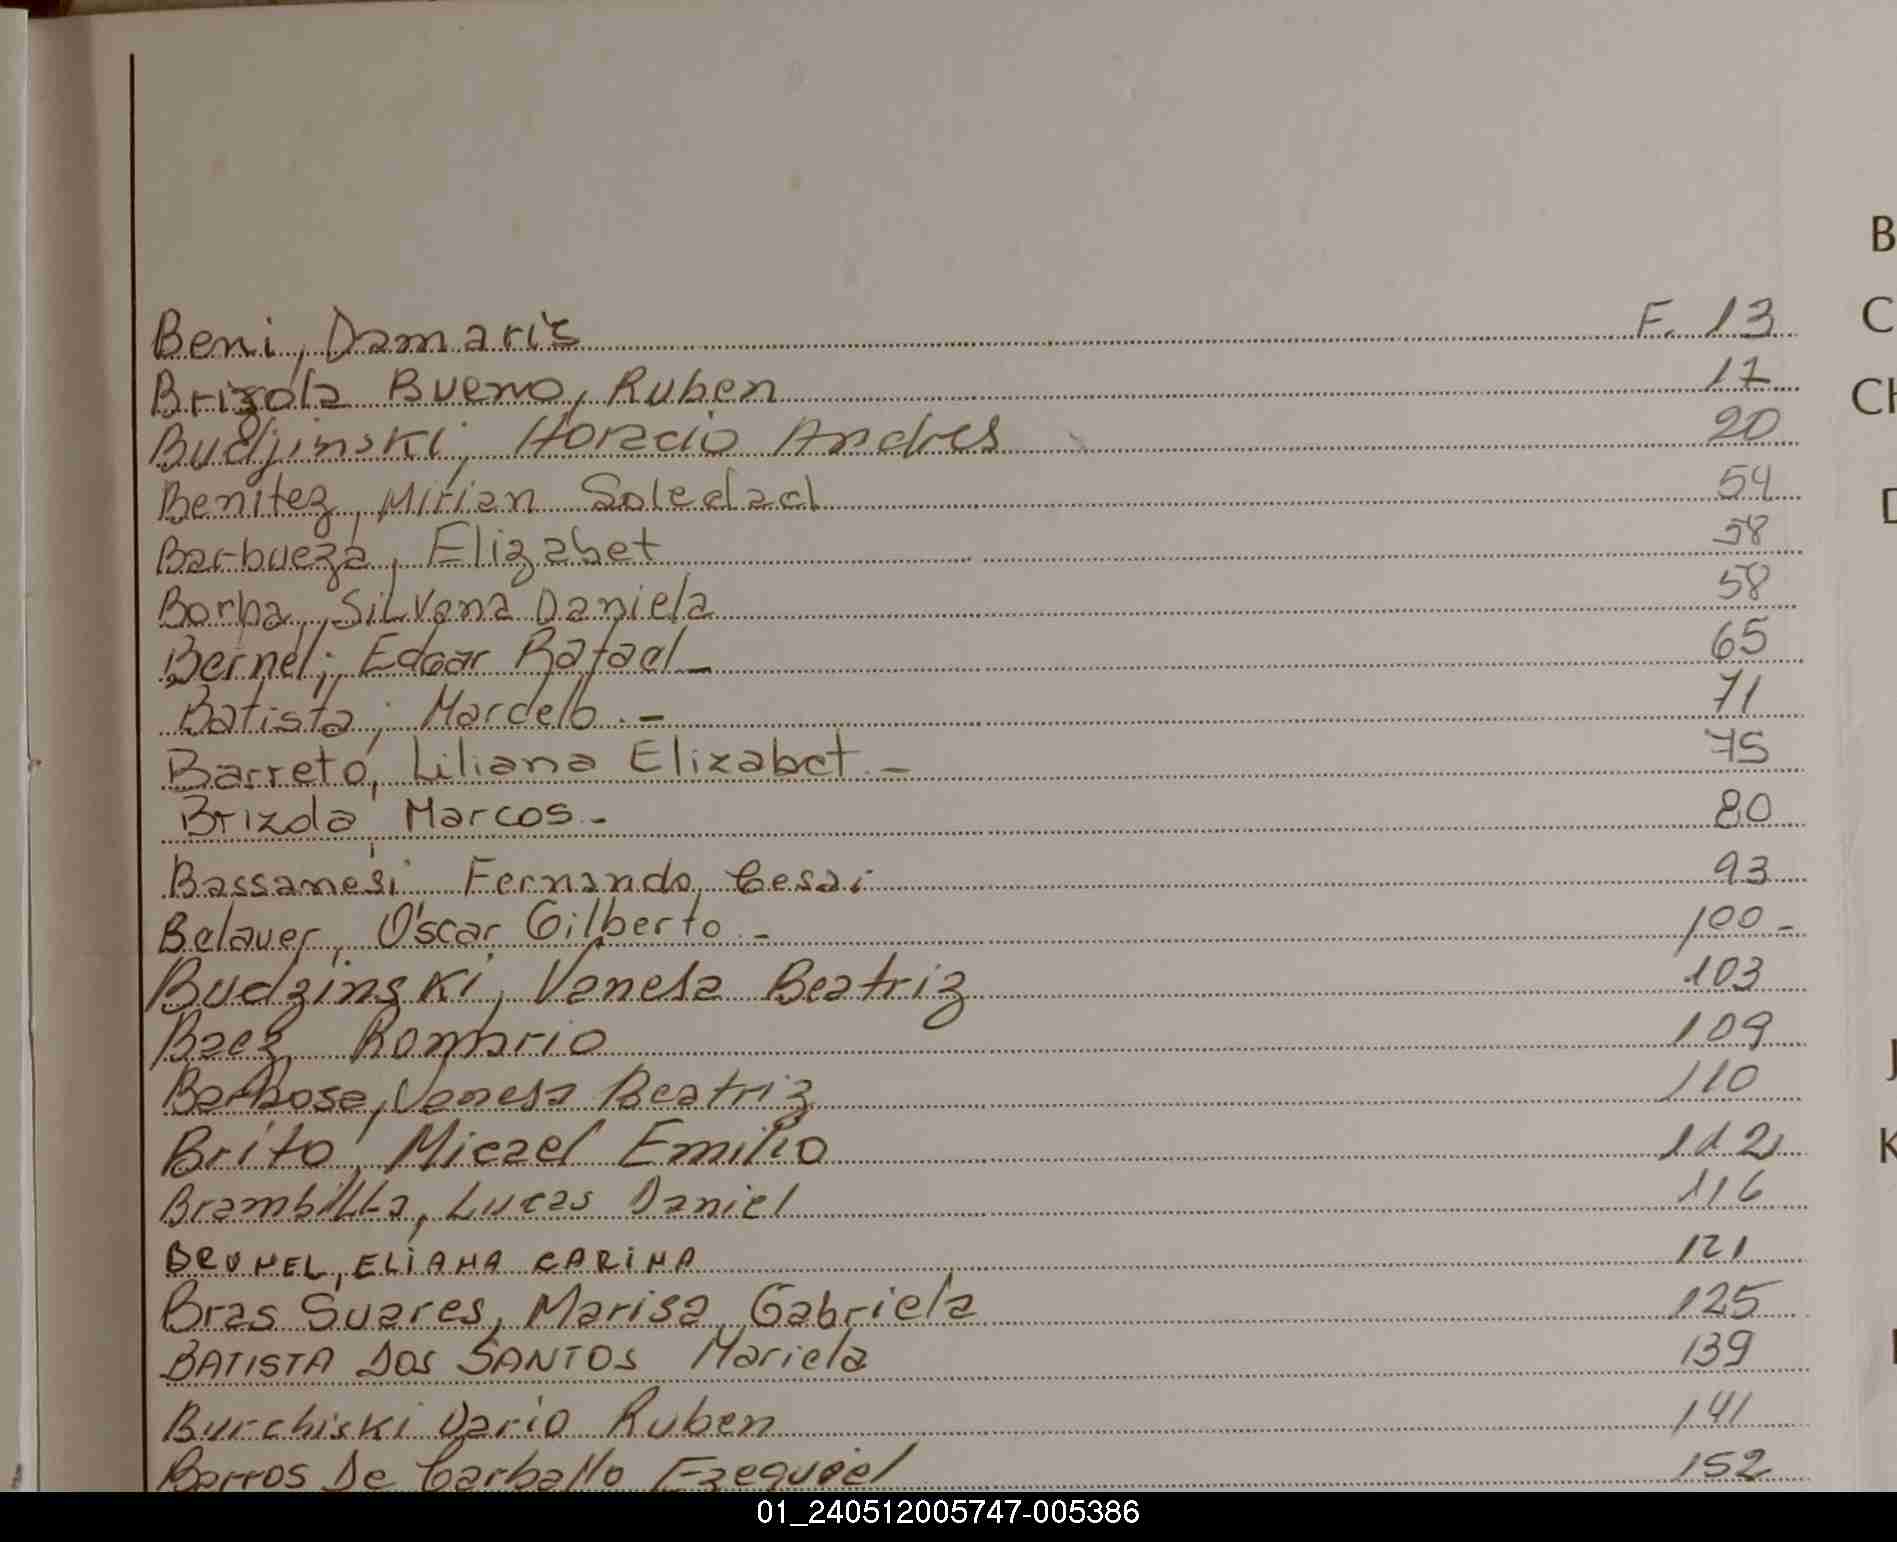 Beni, Damaris F. 13
Brizola Bueno, Ruben 17
Budjinski, Horacio Andres 20
Benitez, Mirian Soledad 54
Barbueza, Elizabet 58
Borba, Silvana Daniela 58
Bernel; Edgar Rafael - 65
Batista, Marcelo. - 71
Barreto, Liliana Elizabet - 75
Brizola, Marcos - 80
Bassanesi Fernando Cesar 93
Belauer, Oscar Gilberto - 100 -
Budzinski, Vanesa Beatriz 103
Baez Romario 109
Barbosa, Vanesa Beatriz 110
Brito, Micael Emilio 112
BrambiLLa, Lucas Daniel 116
BRUNEL, ELIANA CARINA 121
Bras Suares, Marisa Gabriela 125
BATISTA DOS SANTOS Mariela 139
Burchiski Dario Ruben 141
Barros De Carballo Ezequiel 152
B
C
CH
D
J
K
01_240512005747-005386